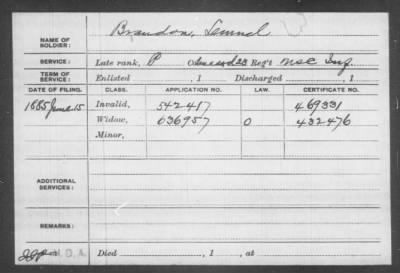 NAME OF SOLDIER: Brandon, Lemuel
SERVICE: Late rank, P Reg't Inf.
TERM OF SERVICE: Enlisted , 1 Discharged , 1
DATE OF FILING. CLASS. APPLICATION NO. LAW. CERTIFICATE NO.
1885 June 15 Invalid, 542417 469331
Widow, 636957 O 432476
Minor,
ADDITIONAL SERVICES:
REMARKS:
Died , 1 , at